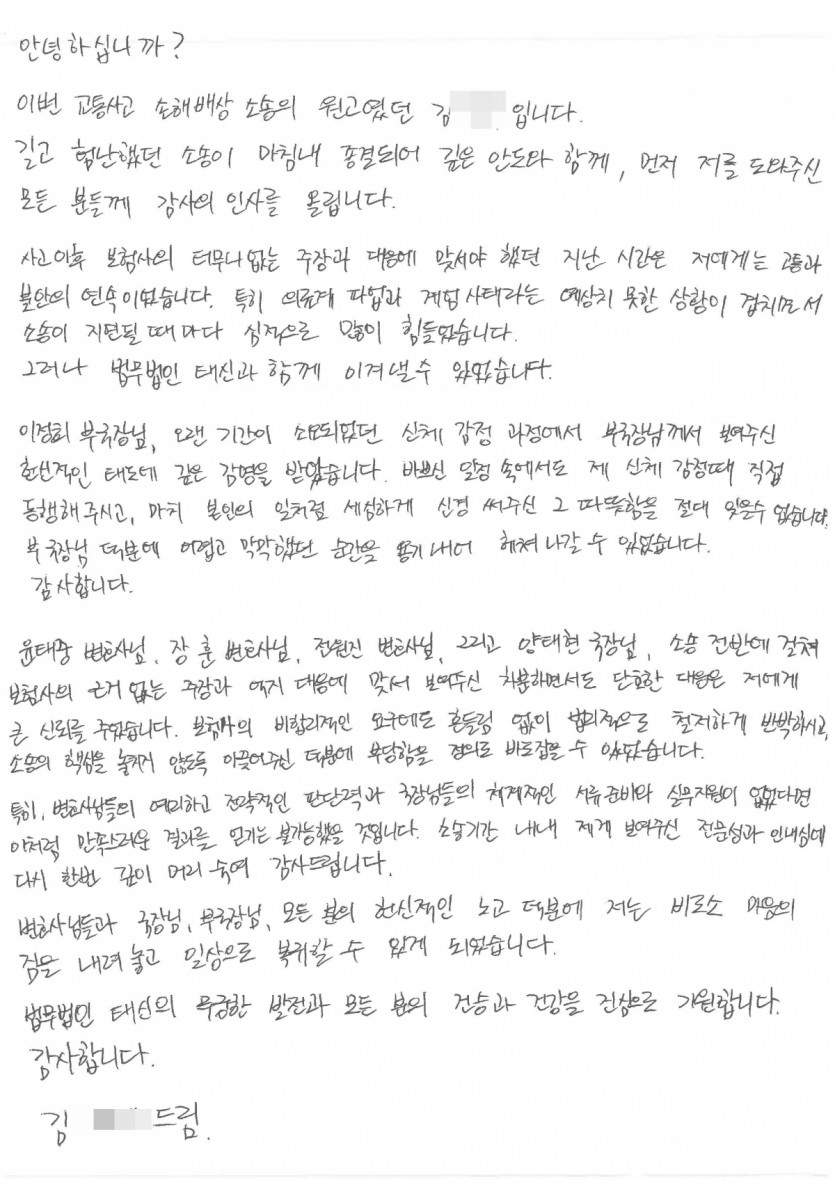 안녕하십니까?
이번 교통사고 손해배상 소송의 원고였던 김 입니다.
길고 험난했던 소송이 마침내 종결되어 깊은 안도와 함께, 먼저 저를 도와주신
모든 분들께 감사의 인사를 올립니다.
사고이후 보험사의 터무니없는 주장과 대응에 맞서야 했던 지난 시간은 저에게는 고통과
불안의 연속이었습니다. 특히 의료계 파업과 계엄사태라는 예상치 못한 상황이 겹치면서
소송이 지연될 때마다 심적으로 많이 힘들었습니다.
그러나 법무법인 태신과 함께 이겨낼 수 있었습니다.
이정희 부국장님, 오랜 기간이 소요되었던 신체 감정 과정에서 부국장님께서 보여주신
헌신적인 태도에 깊은 감명을 받았습니다. 바쁘신 일정 속에서도 제 신체 감정때 직접
동행해 주시고, 마치 본인의 일처럼 세심하게 신경 써주신 그 따뜻함을 절대 잊을수 없습니다.
부국장님 덕분에 어렵고 막막했던 순간을 용기내어 헤쳐 나갈 수 있었습니다.
감사합니다.
윤태중 변호사님, 장훈 변호사님, 전원진 변호사님, 그리고 양태현 국장님, 소송 전반에 걸쳐
보험사의 근거 없는 주장과 억지 대응에 맞서 보여주신 차분하면서도 단호한 대응은 저에게
큰 신뢰를 주었습니다. 보험사의 비합리적인 요구에도 흔들림 없이 법리적으로 철저하게 반박하시고,
소송의 핵심을 놓치지 않도록 이끌어주신 덕분에 부당함을 정의로 바로잡을 수 있었습니다.
특히, 변호사님들의 예리하고 전략적인 판단력과 국장님들의 체계적인 서류 준비와 실무지원이 없었다면
이처럼 만족스러운 결과를 얻기는 불가능했을 것입니다. 소송기간 내내 제게 보여주신 전문성과 인내심에
다시 한번 깊이 머리 숙여 감사드립니다.
변호사님들과 국장님, 부국장님, 모든 분의 헌신적인 노고 덕분에 저는 비로소 마음의
짐을 내려놓고 일상으로 복귀할 수 있게 되었습니다.
법무법인 태신의 무궁한 발전과 모든 분의 건승과 건강을 진심으로 기원합니다.
감사합니다.
김 드림.